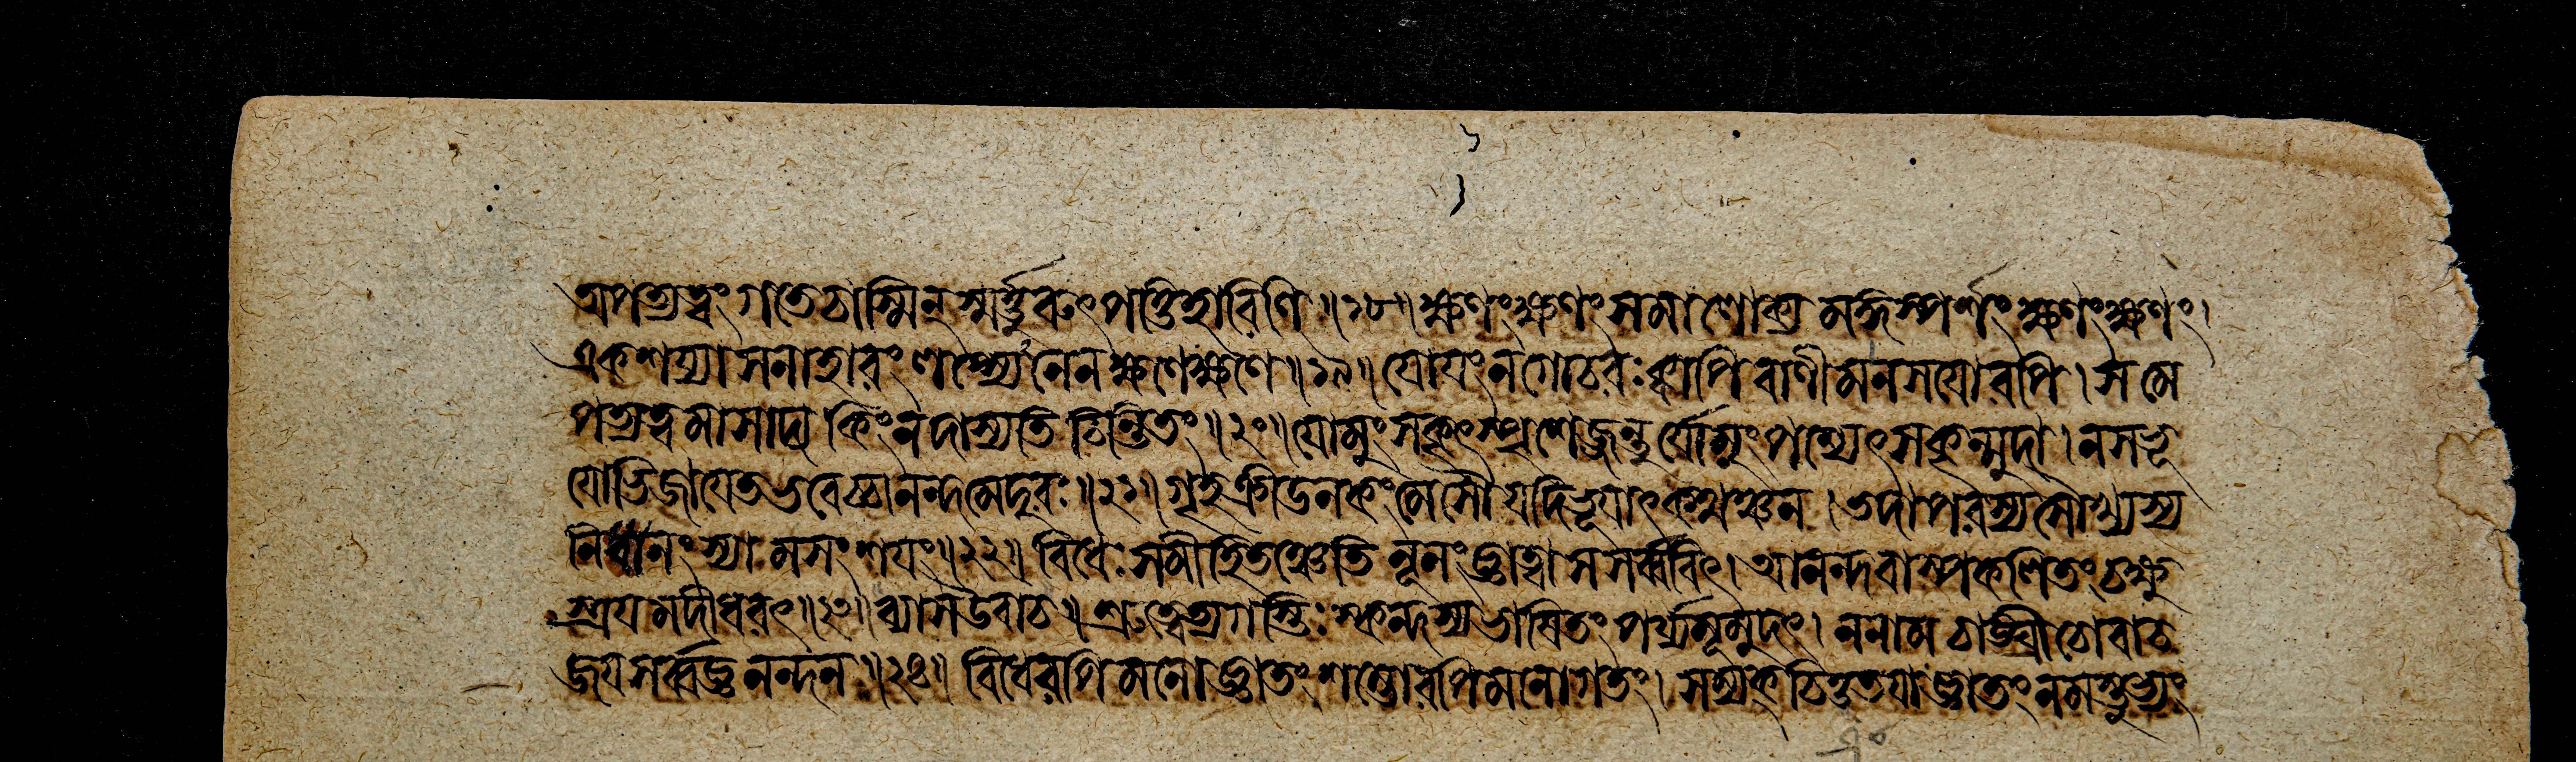 এপত্রত্বং গতেচাস্মিন্ স্মর্ত্তুরুৎপত্তিহারিণি ॥১৮॥ ক্ষণংক্ষণং সমালোক্য মঙ্গিস্পর্শং ক্ষণংক্ষণং।
একশয্যাসনাহারং লপ্স্যেঽনেন ক্ষণেক্ষণে ॥১৯॥ যোযং ন গোচরঃ ক্বাপি বাণীমনসযোরপি। স মে
পত্রত্বমাসাদ্য কিং ন দাস্যতি চিন্তিতং ॥২০॥ যোমুং সকৃৎস্পৃশেজ্জন্তু র্যোমুং পশ্যেৎ সকৃন্মুদা। ন স ভূ
যোভিজাযেত ভবেচ্চানন্দমেদুরঃ ॥২১॥ গৃহক্রীডনকং মেসৌ যদি ভূযাৎ কথঞ্চন। তদাপরস্য সৌখ্যস্য
নিধানং স্যামসংশযং ॥২২॥ বিধেঃ সমীহিতঞ্চেতি নূনং জ্ঞাত্বা স সর্ব্ববিৎ। আনন্দবাষ্পকলিতং চক্ষু
স্ত্রযমদীধরৎ ॥২৩॥ ব্যাস উবাচ ॥ শ্রুত্বেত্যগস্তিঃ স্কন্দস্য ভাষিতং পর্য্যমূমুদং। ননাম চাঙ্ঘ্রী প্রোবাচ
জয সর্ব্বজ্ঞনন্দন ॥২৪॥ বিধেরপি মনোজ্ঞাতং শম্ভোরপি মনোগতং। সম্যক্ জ্ঞাতং নমস্তুভ্যং